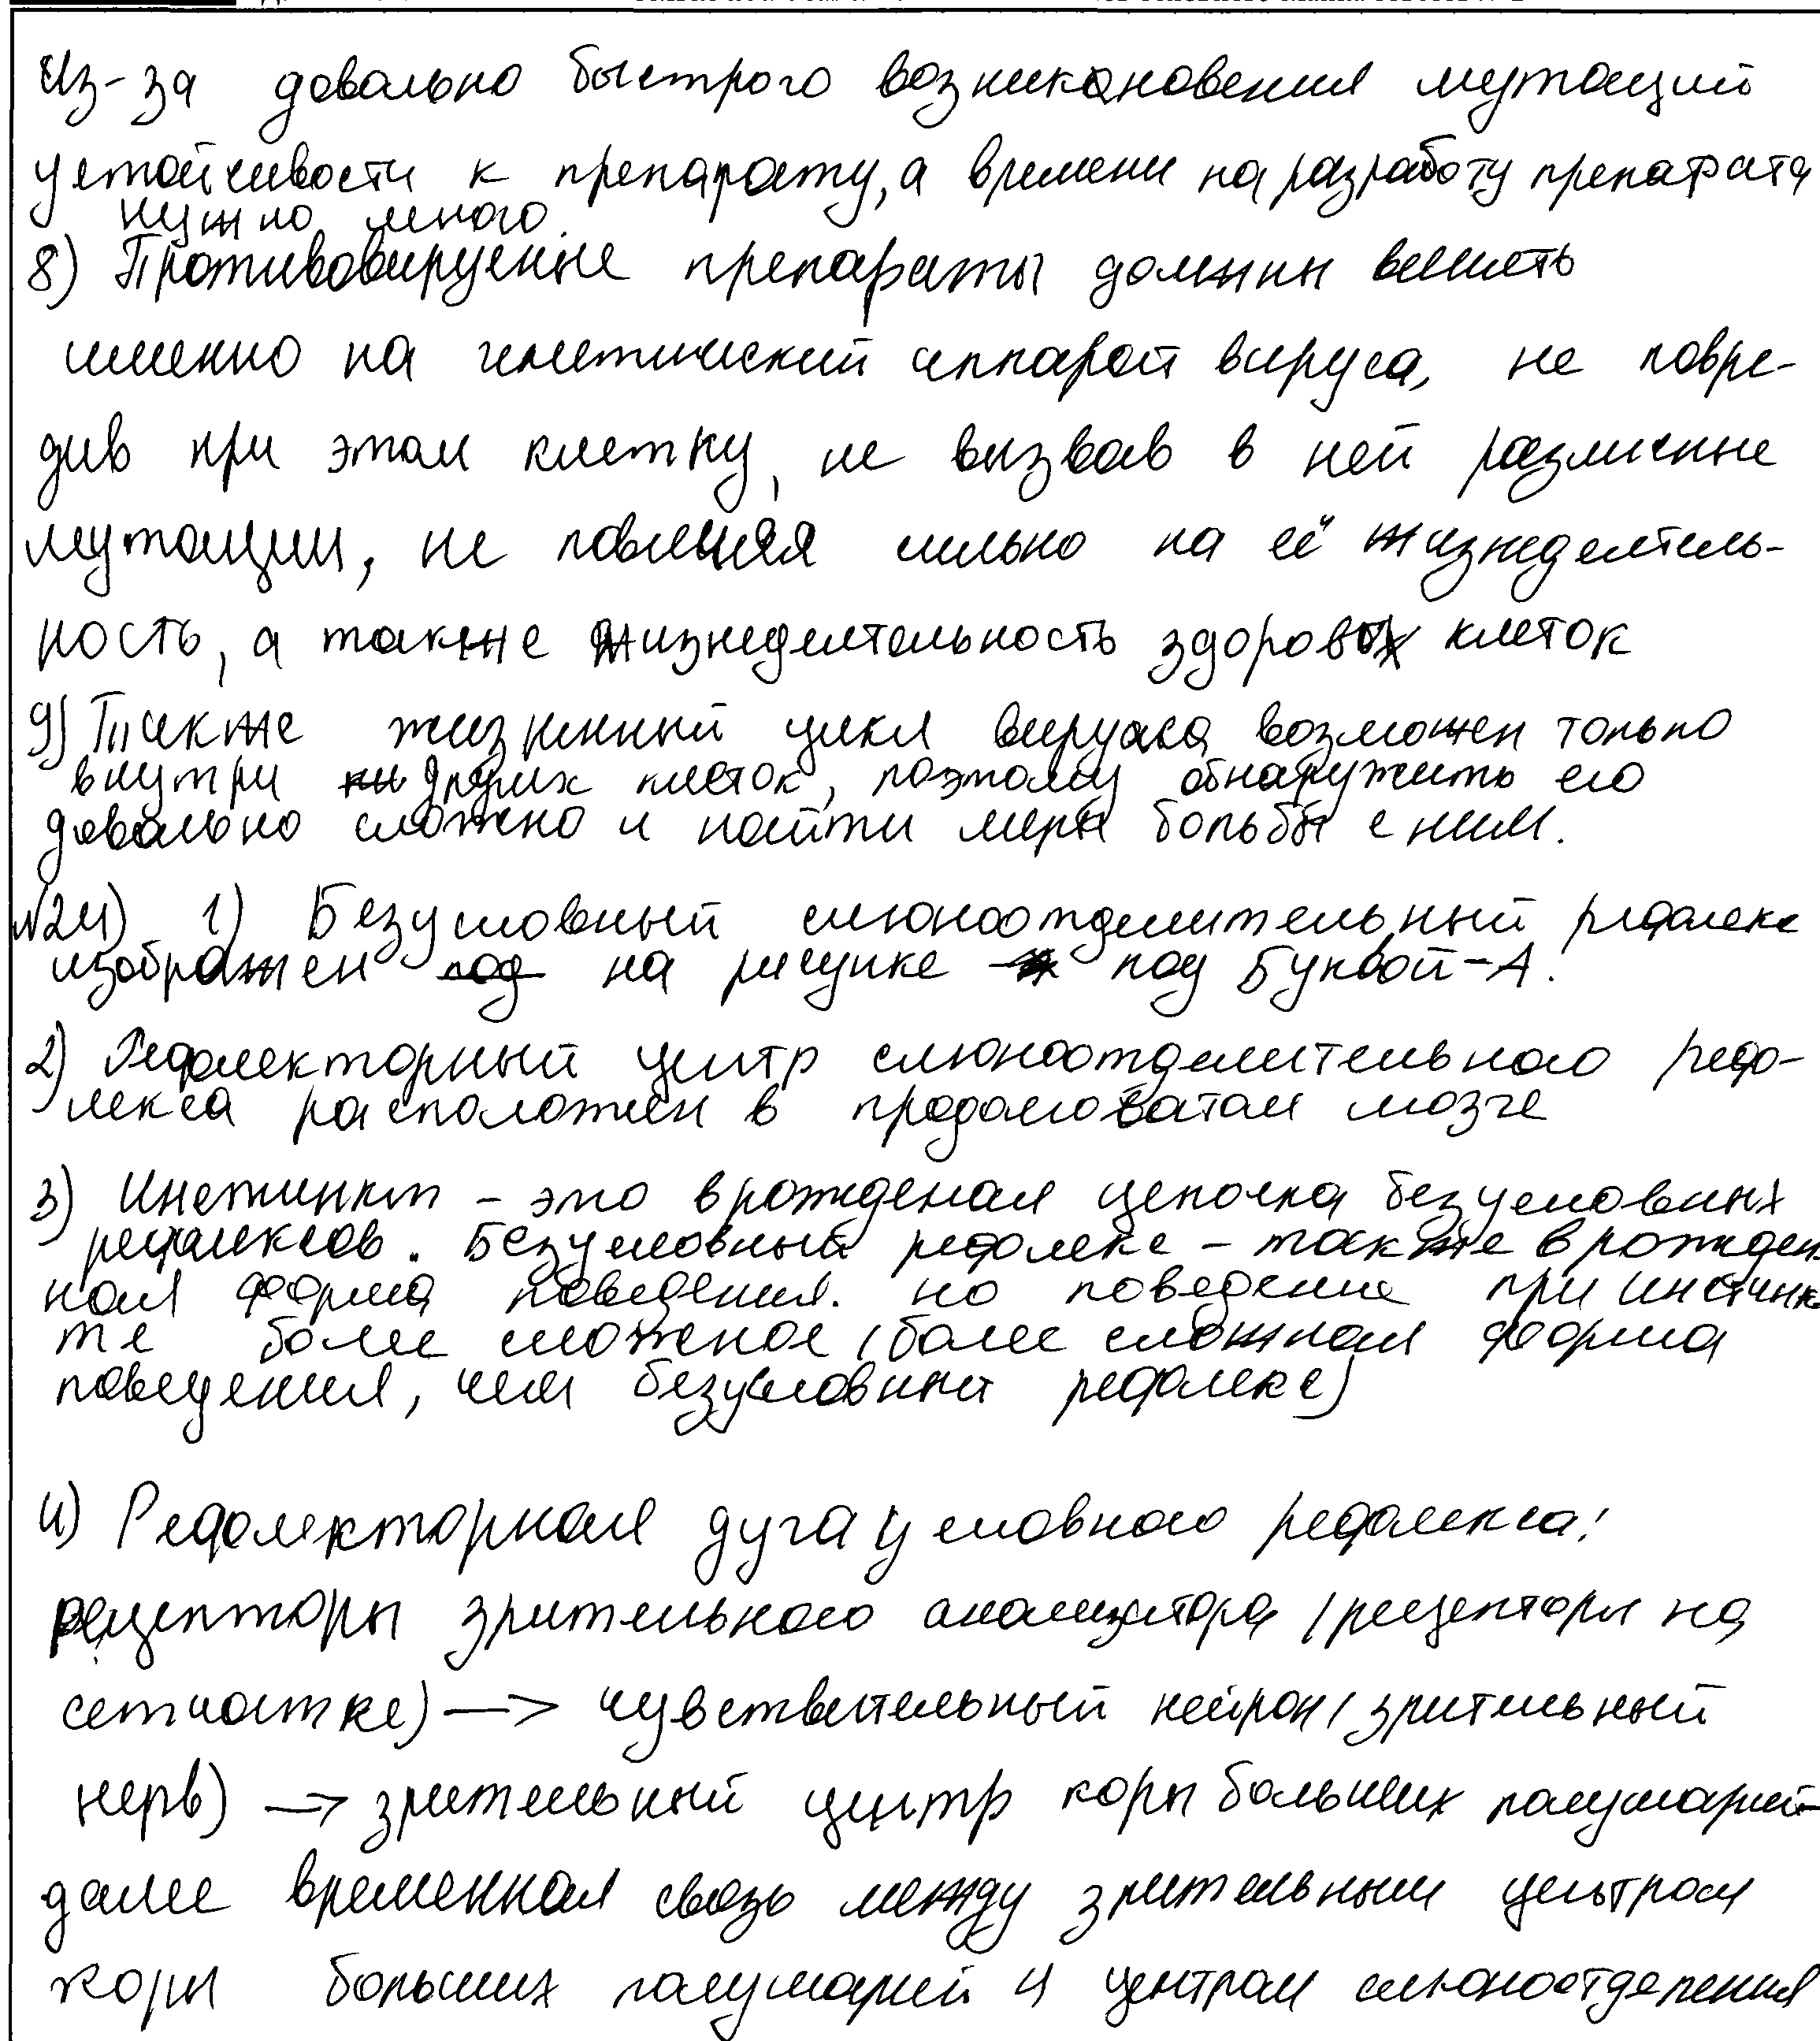 Из-за довально быстрого возникновения мутаций
устойчивости к препарату, а времени на разработу препарата
нужно много.
8) Противовирусные препараты должны влиять
именно на генетический аппарат вируса, не повре-
див при этом клетку, не вызвав в ней различные
мутации, не повлияя сильно на её жизнедеятель-
ность, а также жизнедеятельность здоровых клеток
9) Также жизненный цикл вируса возможен только
внутри других клеток, поэтому обнаружить его
довально сложно и найти меры борьбы с ним.
№24) 1) Безусловный слюноотделительный рефлекс
изображен на рисунке под буквой-А.
2) Рефлекторный центр слюноотделительного реф-
лекса расположен в продолговатом мозге
3) Инстинкт - это врожденая цепочка безусловных
рефлексов. Безусловный рефлекс - также врожден
ная форма поведения. но поведение при инстинк
те более сложное (более сложная форма
поведения, чем безусловный рефлекс)
4) Рефлекторная дуга условного рефлекса:
рецепторы зрительного анализатора (рецепторы на
сетчатке) —> чувствительный нейрон (зрительный
нерв) —> зрительный центр коры больших полушарий-
далее временная связь между зрительным центром
коры больших полушарий и центром слюноотделения